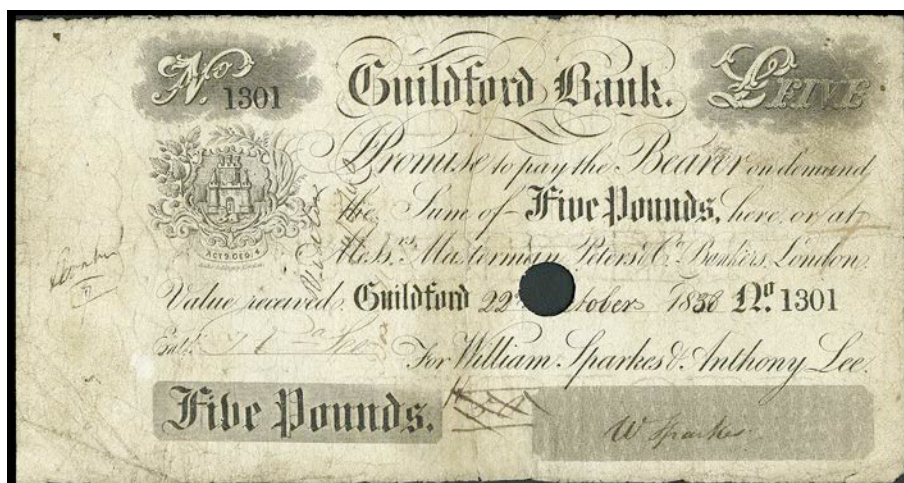 No. 1301
Guildford Bank.
£FIVE
Promise to pay the Bearer on demand
the Sum of Five Pounds, here, or at
Messrs. Masterman, Peters & Co. Bankers, London.
ACT 9. GEO. 4.
Value received. Guildford 22 tober 1836 No. 1301
Entd.
For William Sparkes & Anthony Lee.
Five Pounds.
W Sparkes